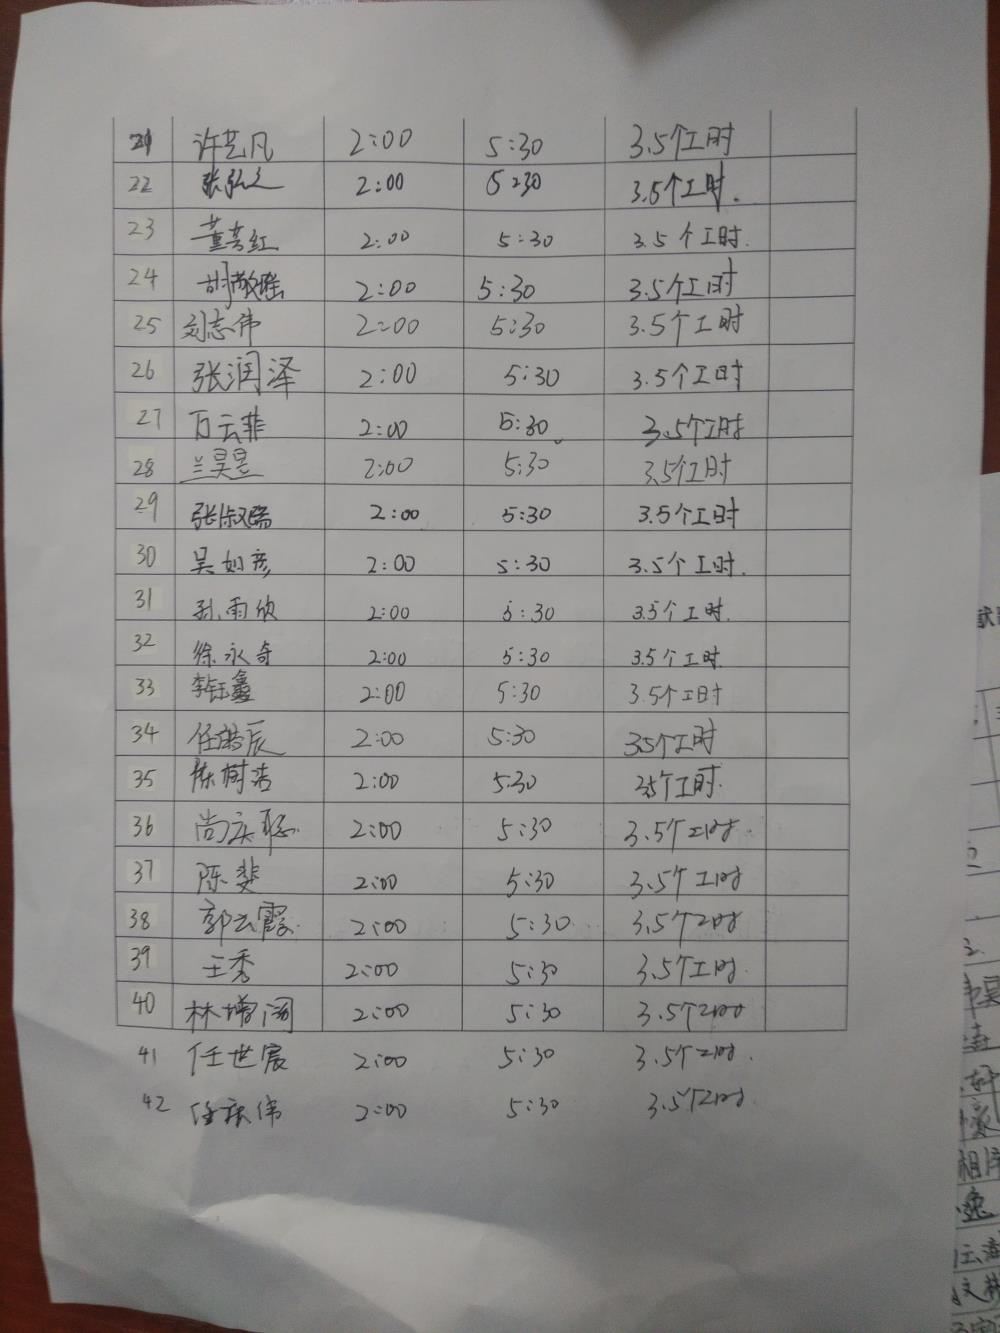 21 许艺凡 2:00 5:30 3.5个工时
22 张弘 2:00 5:30 3.5个工时.
23 董芸红 2:00 5:30 3.5个工时.
24 胡敬瑶 2:00 5:30 3.5个工时
25 刘志伟 2:00 5:30 3.5个工时
26 张润泽 2:00 5:30 3.5个工时
27 万云菲 2:00 5:30 3.5个工时
28 兰昊昱 2:00 5:30 3.5个工时
29 张淑瑞 2:00 5:30 3.5个工时
30 吴如彦 2:00 5:30 3.5个工时.
31 孙雨欣 2:00 5:30 3.5个工时.
32 徐永奇 2:00 5:30 3.5个工时
33 李钰鑫 2:00 5:30 3.5个工时
34 任辰 2:00 5:30 3.5个工时
35 陈树洁 2:00 5:30 3.5个工时.
36 尚庆聪 2:00 5:30 3.5个工时.
37 陈斐 2:00 5:30 3.5个工时
38 郭云霞 2:00 5:30 3.5个工时
39 王秀 2:00 5:30 3.5个工时.
40 林增 2:00 5:30 3.5个工时
41 任世宸 2:00 5:30 3.5个工时.
42 任伟 2:00 5:30 3.5个工时.